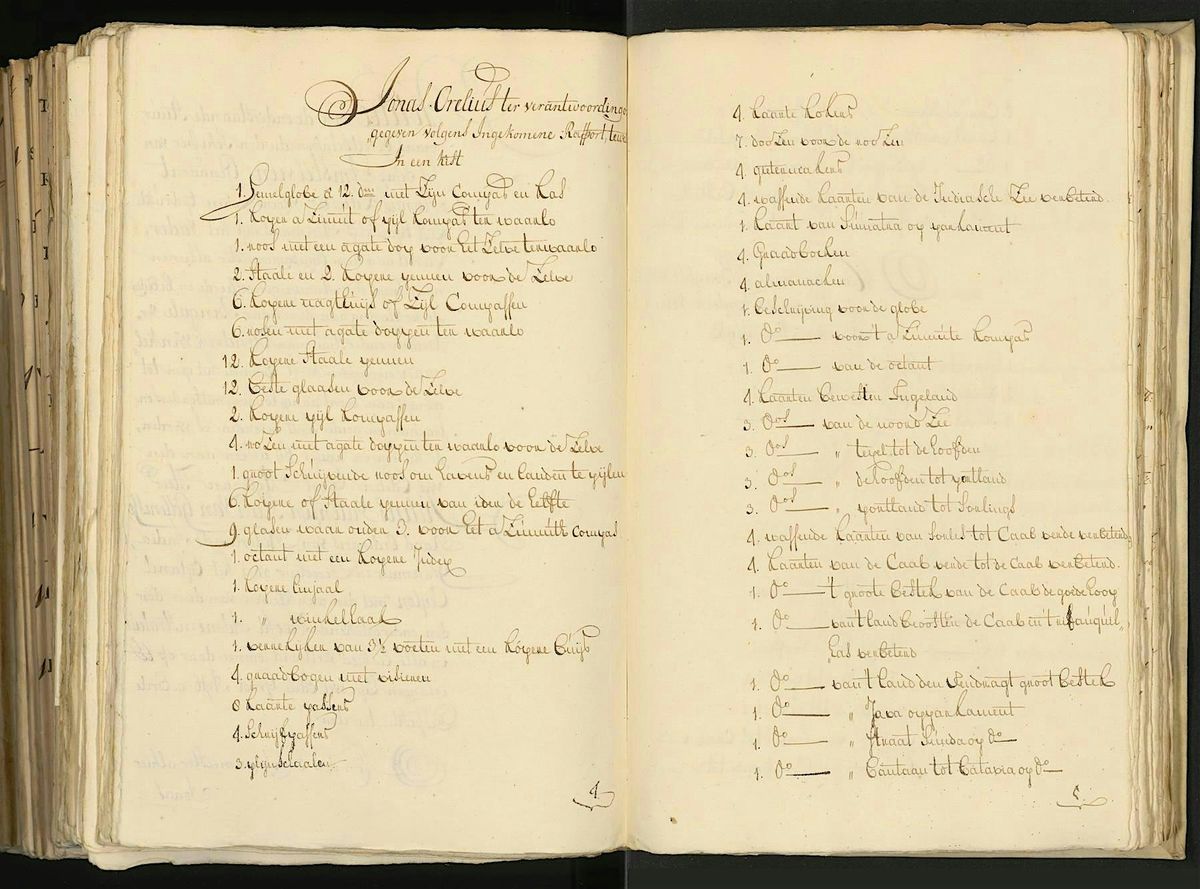 Jonas Crelius ter verantwoording
gegeven volgens Ingekomene Rapport, tewe
In een kist
1. Hemelglobe a 12. dm met Zijn Compas en kas
1. kopen aZimut of pijl kompas ten waarlo
1. roos met een agate dop voor het Zelve ten waarlo
2. Staale en 2. kopene pennen voor de Zelve
6. kopene nagthuijs of Zijl Compassen
6. rosen met agate doppen ten waarlo
12. kopene Staale pennen
12. beste glaasen voor de Zelve
2. kopene pijl kompassen
4. roZen met agate doppen ten waarlo voor de Zelve
1. groot Schuijvende roos om havens en landen te pijlen
6. kopene of Staale pennen van ider de helfte
9. glasen waar onder 3. voor het aZimuth Compas
1. octant met een kopene Index
1. kopene liniaal
1. " winkelhaak
1. verrekyker van 3½ voeten met een kopene buijs
4. graadbogen met visieren
8 kaarte passers
4. Schrijfpassers
3. plijnschaalen
4
4. kaarte kokers
7. dooZen voor de rooZen
4. gutermakers
4. wassende kaarten van de Indiasche Zee verbeterd.
1. kaart van Sumatra op parkament
4. Graadboeken
4. almanacken
1. beschrijving voor de globe
1. do voor 't aZimute kompas
1. do van de octant
4. kaarten bewesten Ingeland
3. dos van de noord Zee
3. dos " texel tot de hoofden
3. dos " de hoofden tot portland
3. dos " portland tot Sorlings
4. wassende kaarten van Sorles tot Caab verde verbeterd
4. kaarten van de Caab verde tot de Caab verbeterd.
1. do 't groote bestek van de Caab de goede hoop
1. do van 't land beoosten de Caab en 't rif anquil„
has verbeterd
1. do van 't land den Eendragt groot bestek
1. do " Java op parkament
1. do " Straat Sunda op do
1. do " bantam tot batavia op do
5